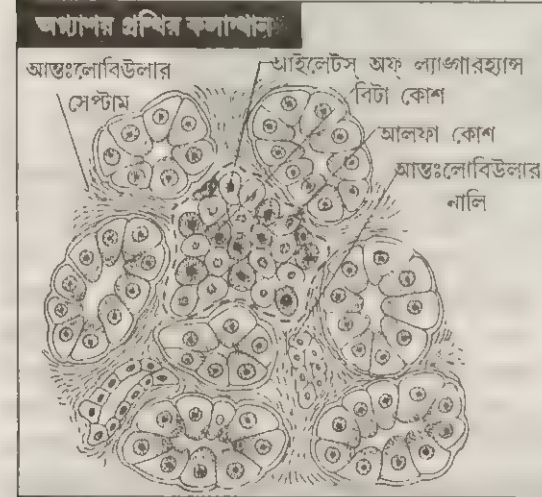 অগ্ন্যাশয় গ্রন্থির কলাস্থান
আন্তঃলোবিউলার
সেপ্টাম
আইলেটস্ অফ্ ল্যাঙ্গারহ্যান্স
বিটা কোশ
আলফা কোশ
আন্তঃলোবিউলার
নালি